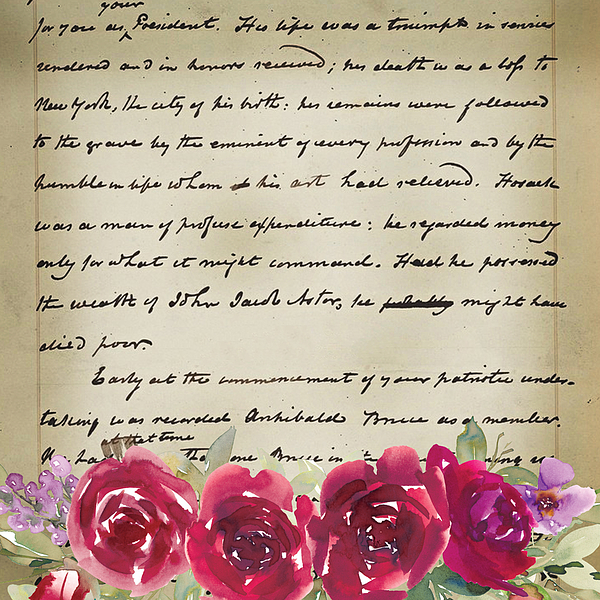 your
for you as, President. His life was a triumph in services
rendered and in honors received; his death was a loss to
New York, the city of his birth: his remains were followed
to the grave by the eminent of every profession and by the
humble in life whom his art had relieved. Hosack
was a man of profuse expenditure: he regarded money
only for what it might command. Had he possessed
the wealth of John Jacob Astor, he might have
died poor.
Early at the commencement of your patriotic under-
taking was recorded Archibald Bruce as a member.
at that time
Bruce in